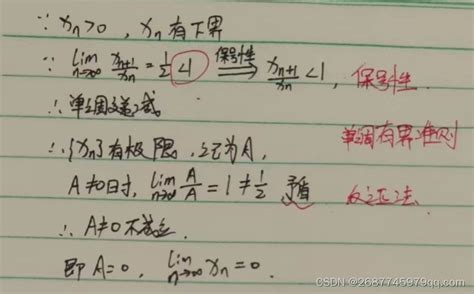 ∵ xₙ>0, xₙ有下界
∵ lim n→∞ xₙ₊₁/xₙ = 1/2 <1 保号性⇒ xₙ₊₁/xₙ <1, 保号性.
∴单调递减.
∴{xₙ}有极限. 记为A, 单调有界准则
A≠0时, lim n→∞ A/A = 1 ≠ 1/2 矛盾 反证法.
∴ A≠0 不成立.
即 A=0, lim n→∞ xₙ=0.
CSDN @2687745979qq.com